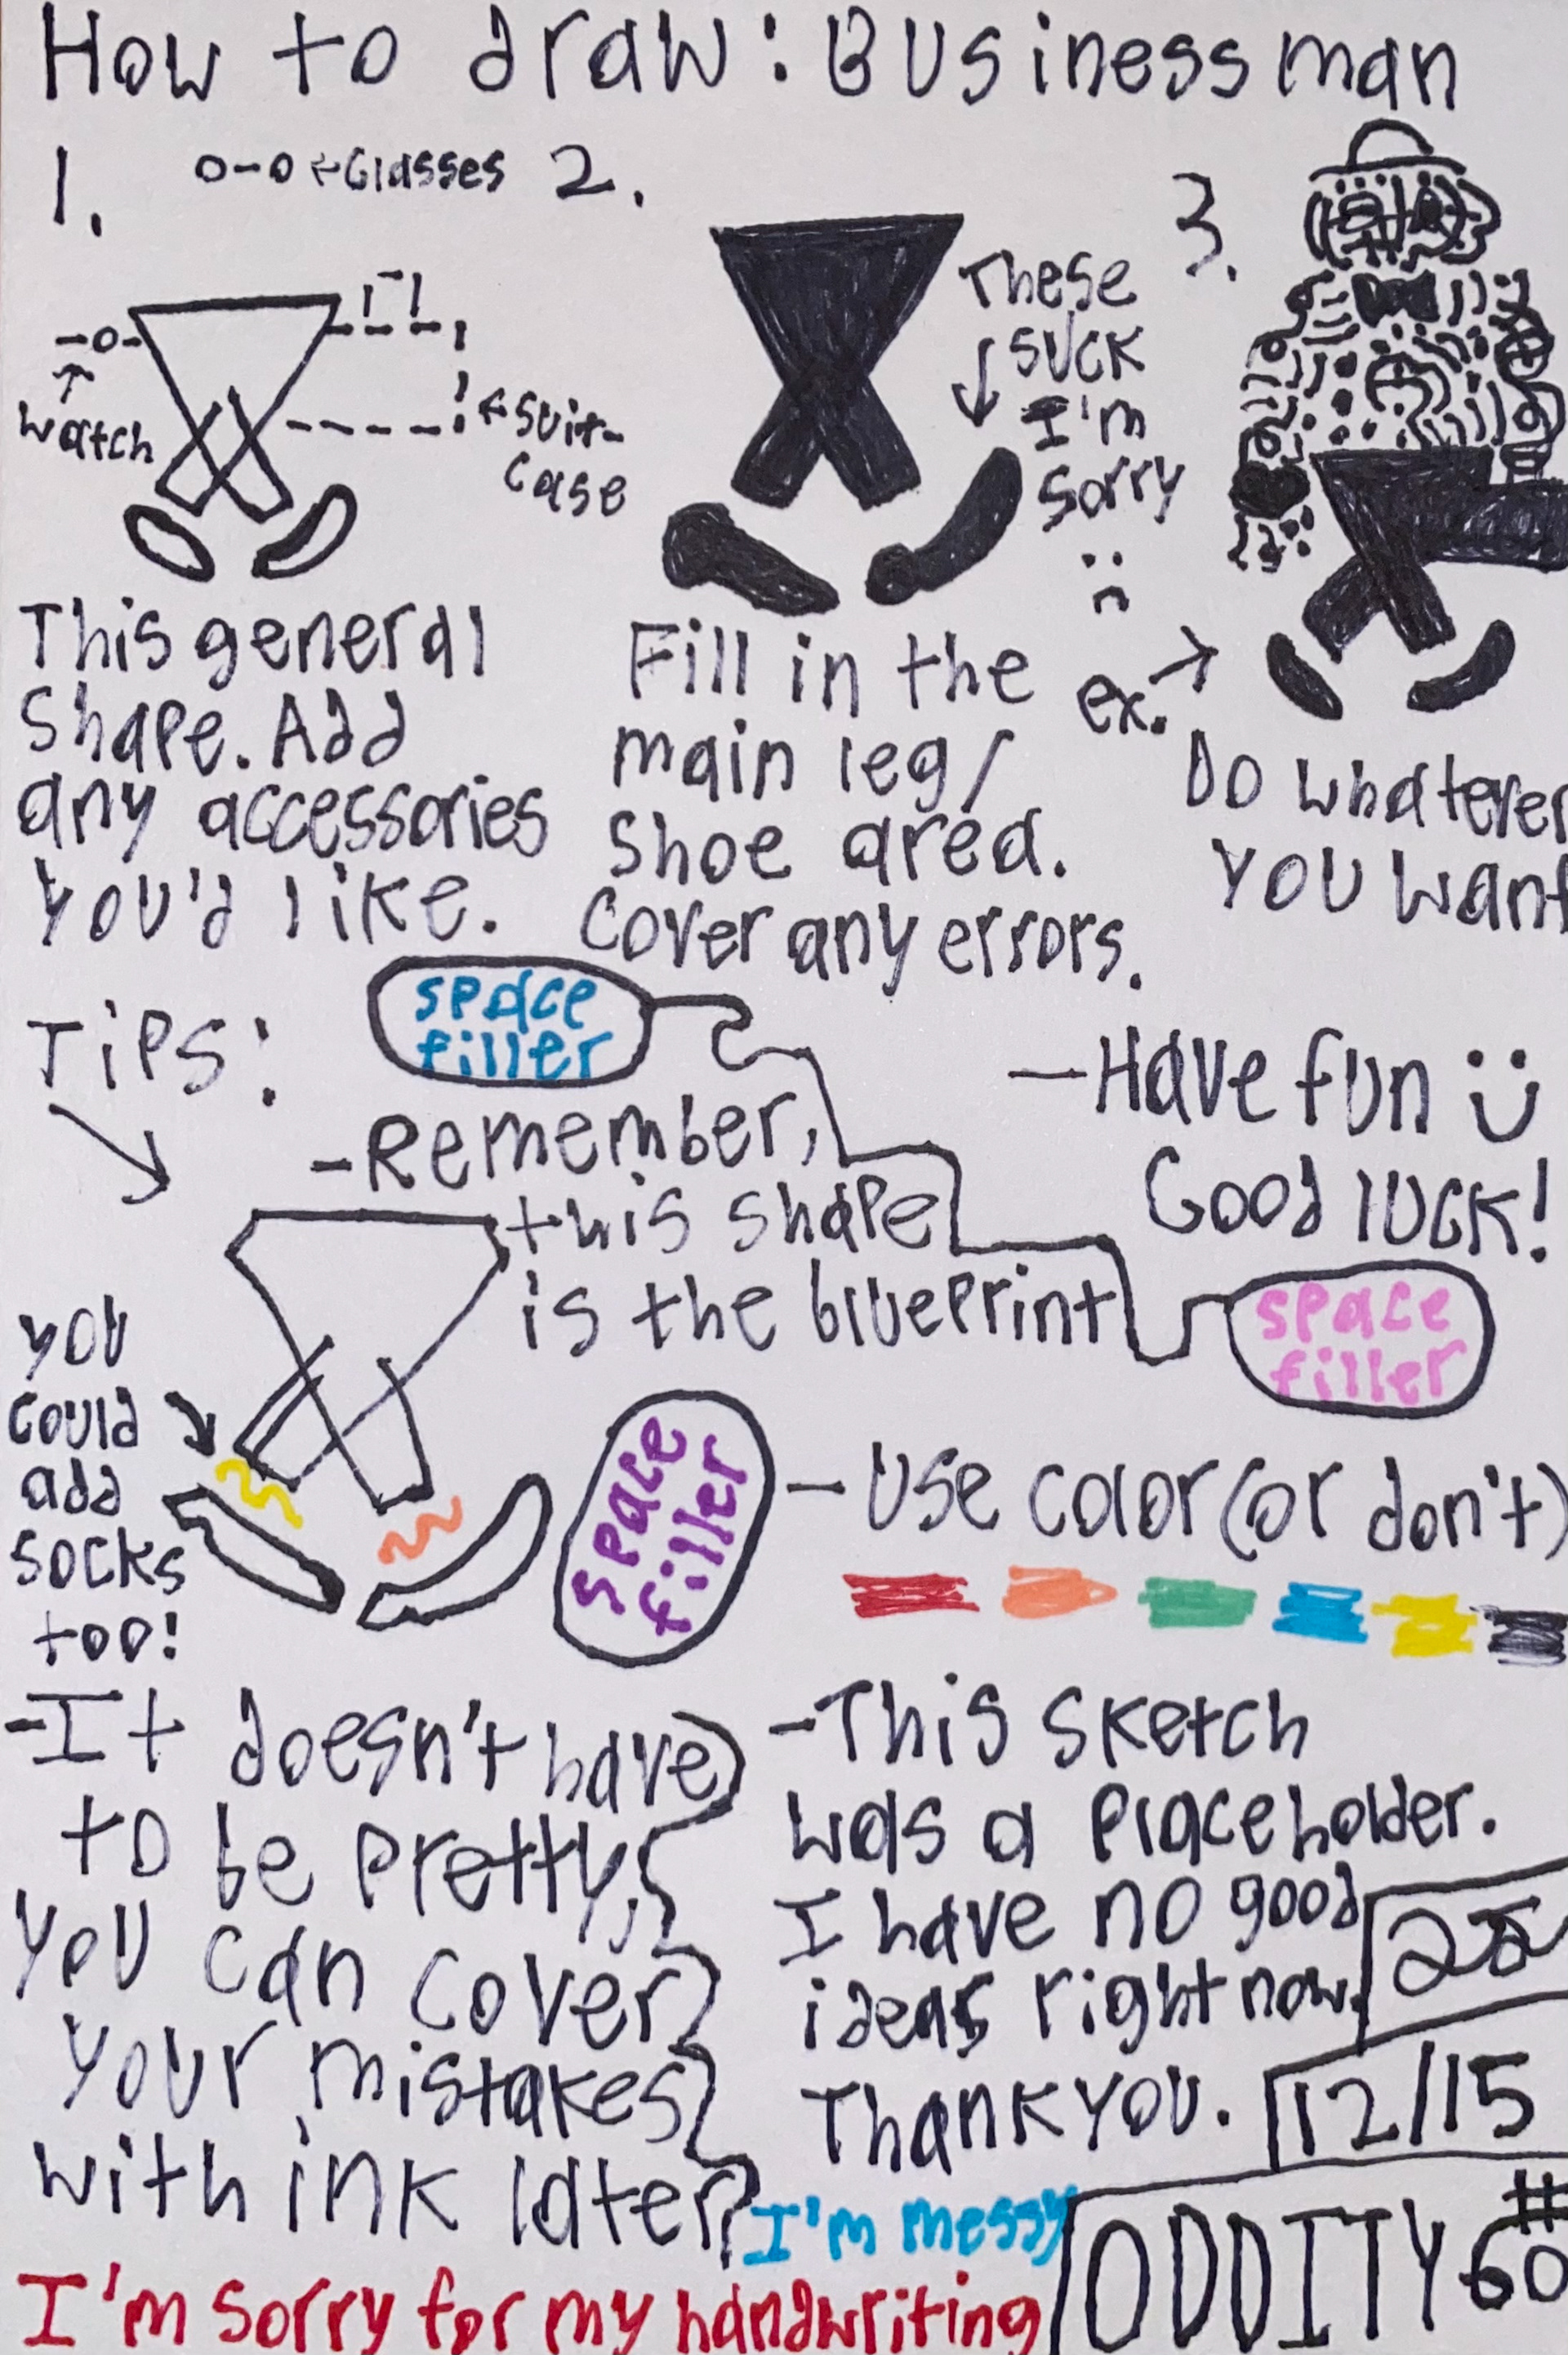 How to draw: Businessman
1.
o-o ←Glasses
Watch
←Suit-
Case
This general
shape. Add
any accessories
you'd like.
2.
These
suck
I'm
sorry
:(
Fill in the
main leg/
shoe area.
Cover any errors.
3.
ex. →
Do whatever
you want
Tips:
space
filler
-Remember,
this shape
is the blueprint
-Have fun :)
Good luck!
space
filler
you
could
add
socks
too!
space
filler
-Use color (or don't)
-It doesn't have
to be pretty,
you can cover
your mistakes
with ink later
-This sketch
was a placeholder.
I have no good
ideas right now.
Thank you.
12/15
I'm messy
I'm sorry for my handwriting
ODDITY #60